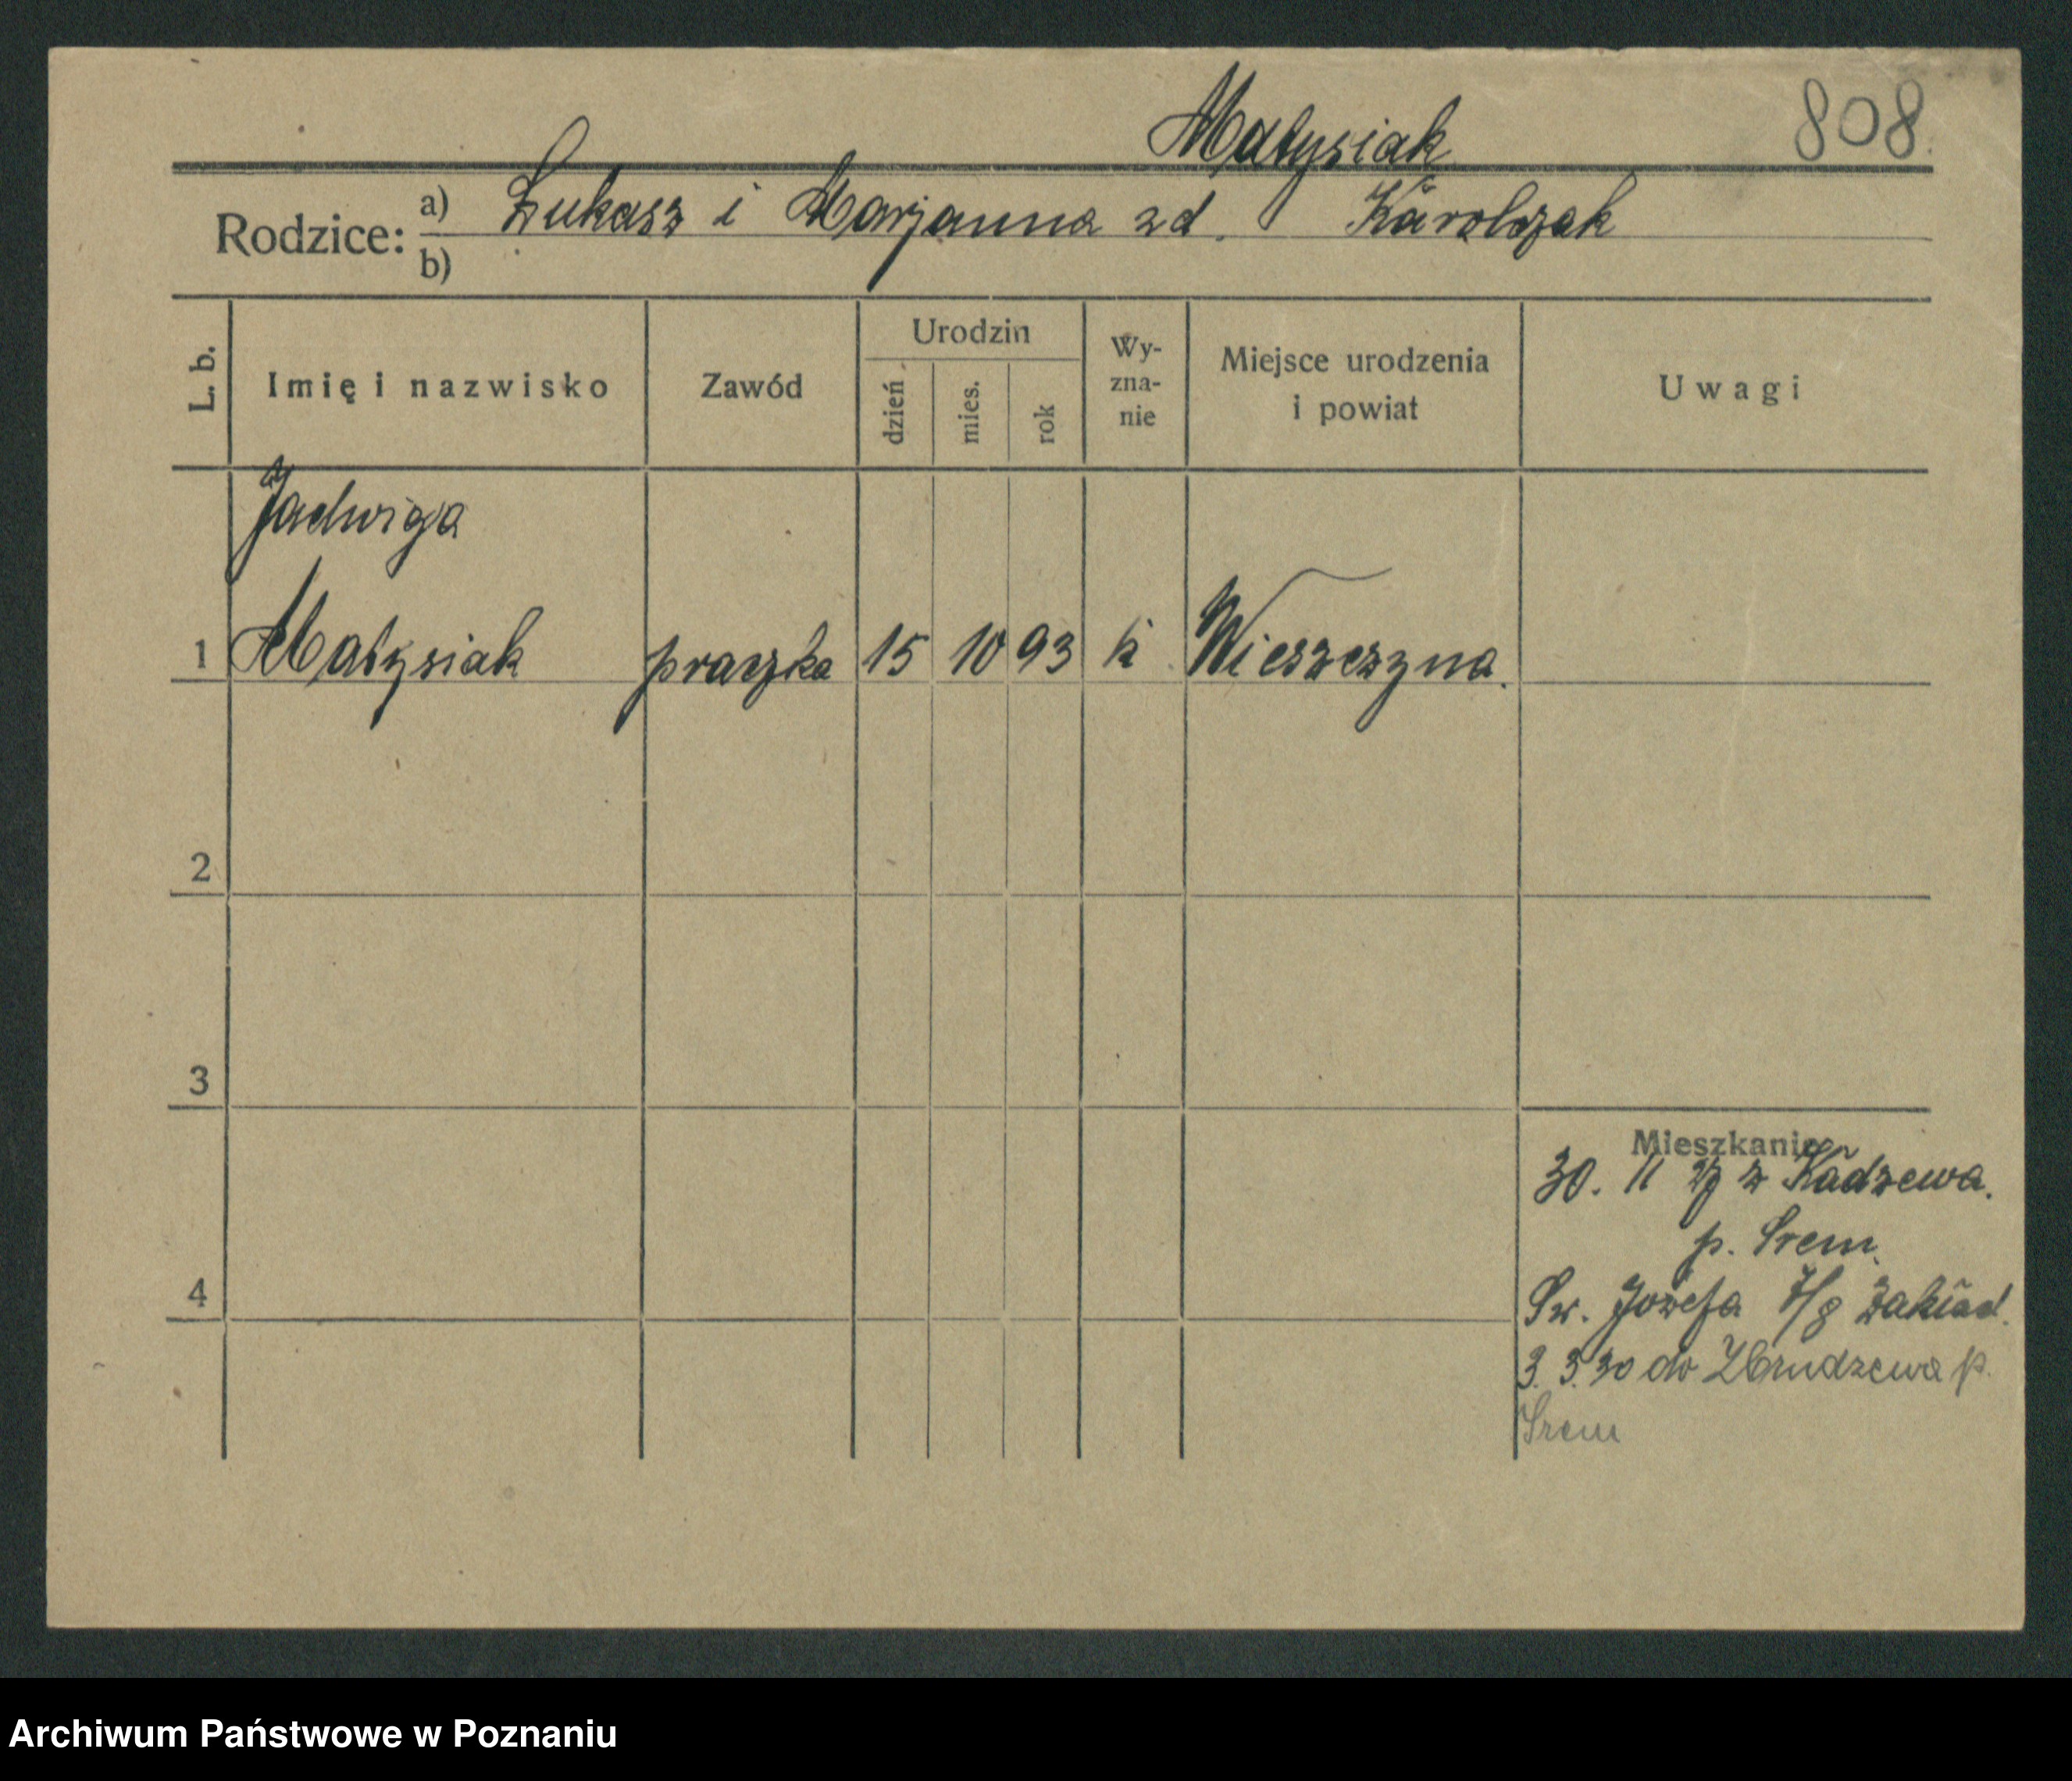 Matysiak 808
Rodzice: a) Łukasz i Marjanna zd. Karolczak
b)
L. b. Imię i nazwisko Zawód Urodzin dzień mies. rok Wy-zna-nie Miejsce urodzenia i powiat Uwagi
Jadwiga
1 Matysiak praczka 15 10 93 k Wieszczyna.
2
3
Mieszkanie
30. 11 27 z Kadzewa.
p. Srem.
4
Sw. Józefa 7/9 Zakład.
3. 3. 30 do Zbrudzewa p.
Srem
Archiwum Państwowe w Poznaniu